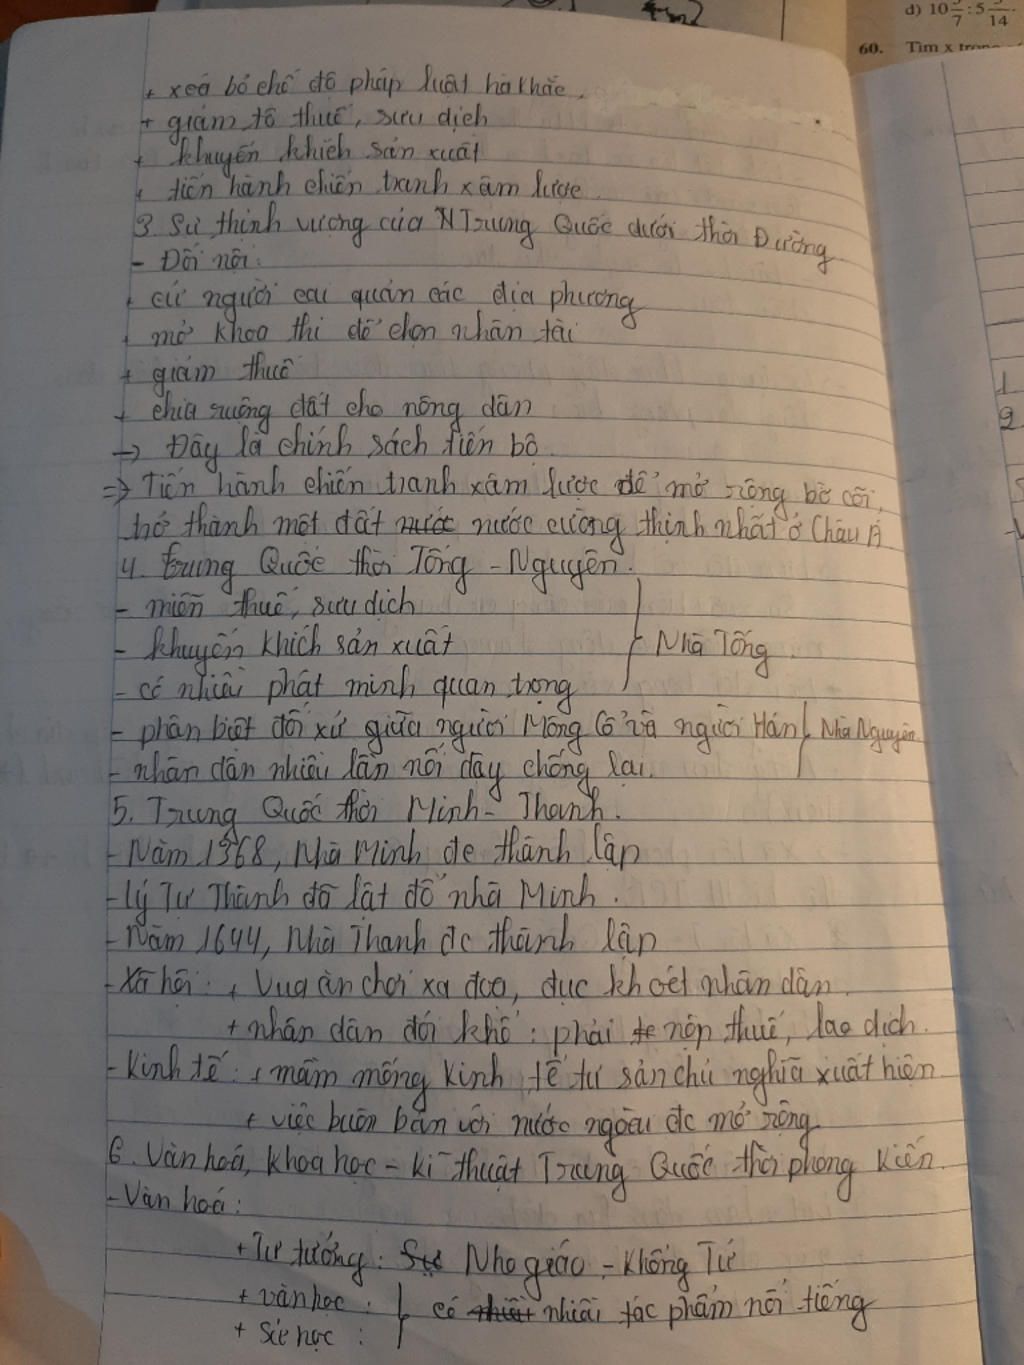 d) 10 5/7 : 5 3/14.
60. Tìm x trong
+ xoá bỏ chế độ pháp luật hà khắc.
+ giảm tô thuế, sưu dịch
+ khuyến khích sản xuất
+ tiến hành chiến tranh xâm lược.
3. Sự thịnh vượng của Trung Quốc dưới thời Đường
- Đối nội:
+ cử người cai quản các địa phương
+ mở khoa thi để chọn nhân tài
+ giảm thuế
+ chia ruộng đất cho nông dân
→ Đây là chính sách tiến bộ.
⇒ Tiến hành chiến tranh xâm lược để mở rộng bờ cõi,
trở thành một đất nước nước cường thịnh nhất ở Châu Á
4. Trung Quốc thời Tống - Nguyên.
- miễn thuế, sưu dịch
- khuyến khích sản xuất } Nhà Tống
- có nhiều phát minh quan trọng
- phân biệt đối xử giữa người Mông Cổ và người Hán } Nhà Nguyên
- nhân dân nhiều lần nổi dậy chống lại.
5. Trung Quốc thời Minh - Thanh.
- Năm 1368, Nhà Minh đc thành lập
- Lý Tự Thành đã lật đổ nhà Minh.
- Năm 1644, Nhà Thanh đc thành lập
- Xã hội: + Vua ăn chơi xa đoạ, đục khoét nhân dân.
+ nhân dân đói khổ: phải nộp thuế, lao dịch.
- Kinh tế: + mầm mống kinh tế tư sản chủ nghĩa xuất hiện
+ việc buôn bán với nước ngoài đc mở rộng
6. Văn hoá, khoa học - kĩ thuật Trung Quốc thời phong kiến.
- Văn hoá:
+ Tư tưởng: Nho giáo - Khổng Tử
+ văn học: } có nhiều tác phẩm nổi tiếng
+ Sử học: